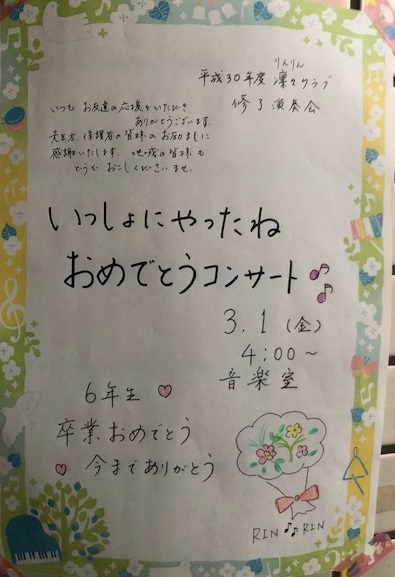 りんりん
平成30年度 凛々クラブ
修了演奏会
いつも お友達の応援をいただき
ありがとうございます。
先生方、保護者の皆様のお力ぞえに
感謝いたします。地域の皆様も
どうぞ おこしくださいませ。
いっしょにやったね
おめでとうコンサート
3.1(金)
4:00〜
音楽室
6年生
卒業おめでとう
今までありがとう
RIN RIN